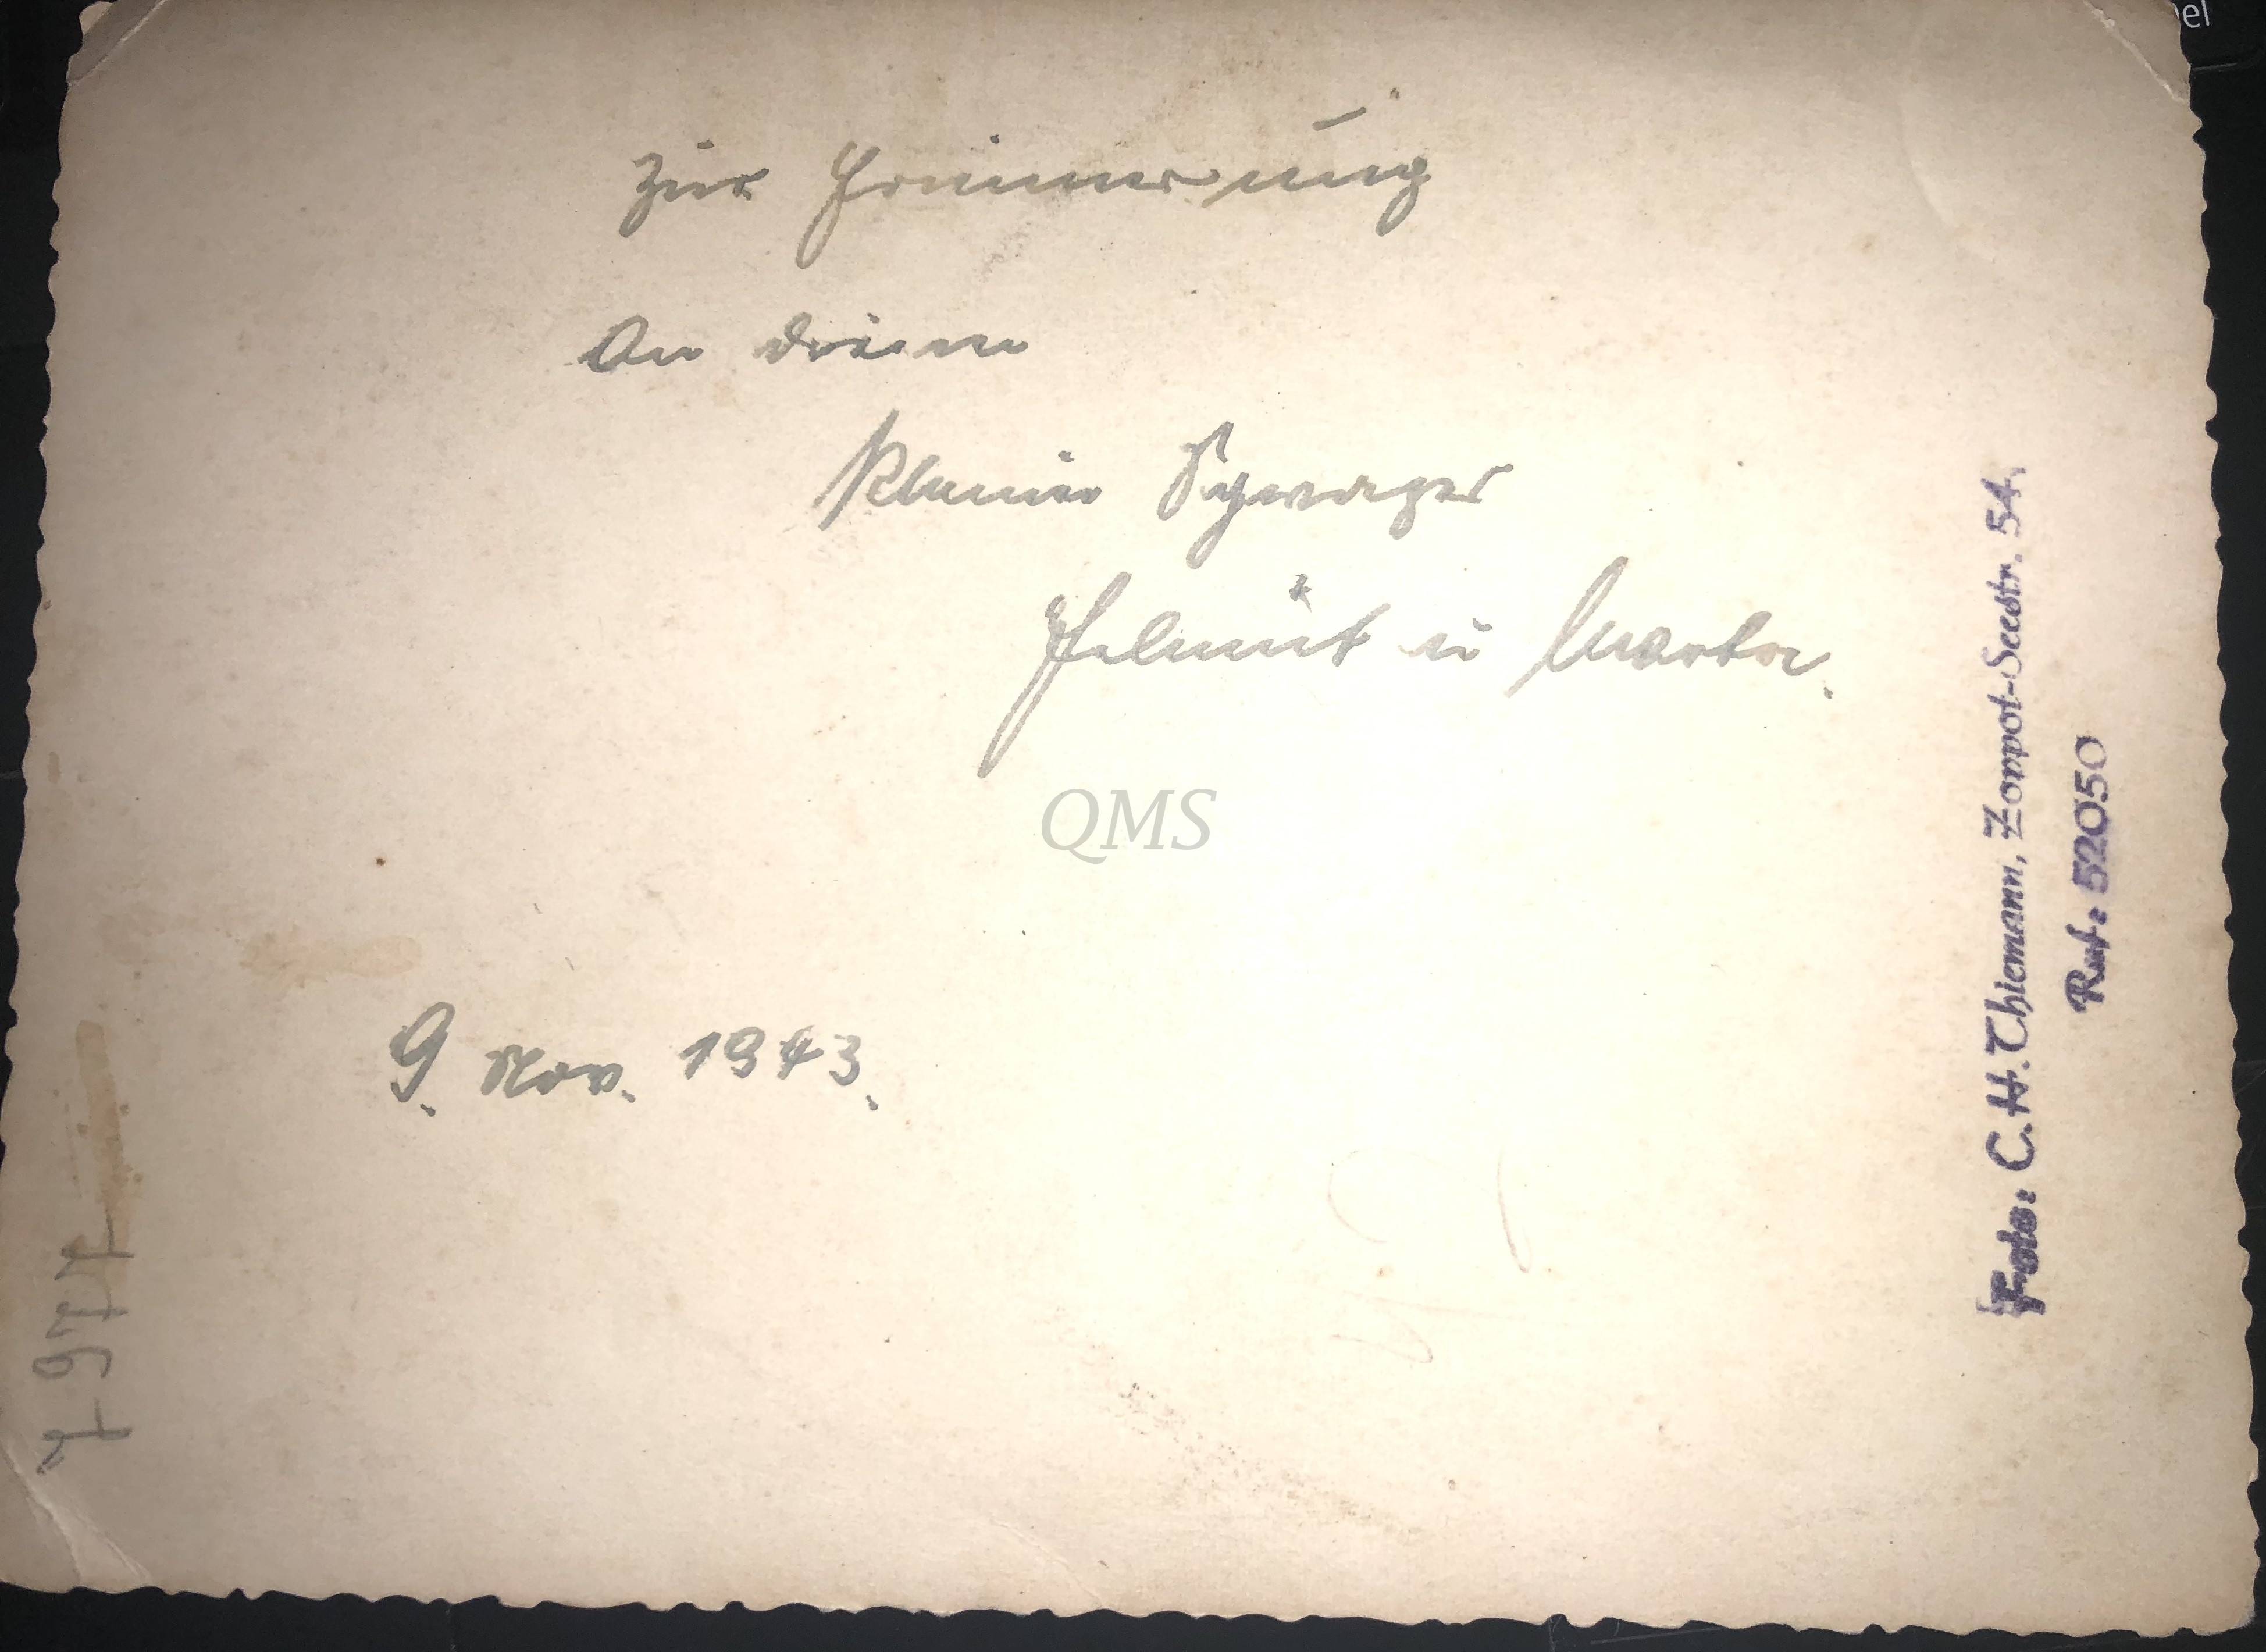 Zur Erinnerung
An deine
kleine Schwager
Helmut u Marta.
QMS
9. Nov. 1943.
Foto: C.H. Thiemann, Zoppot-Seestr. 54.
Ruf: 52050